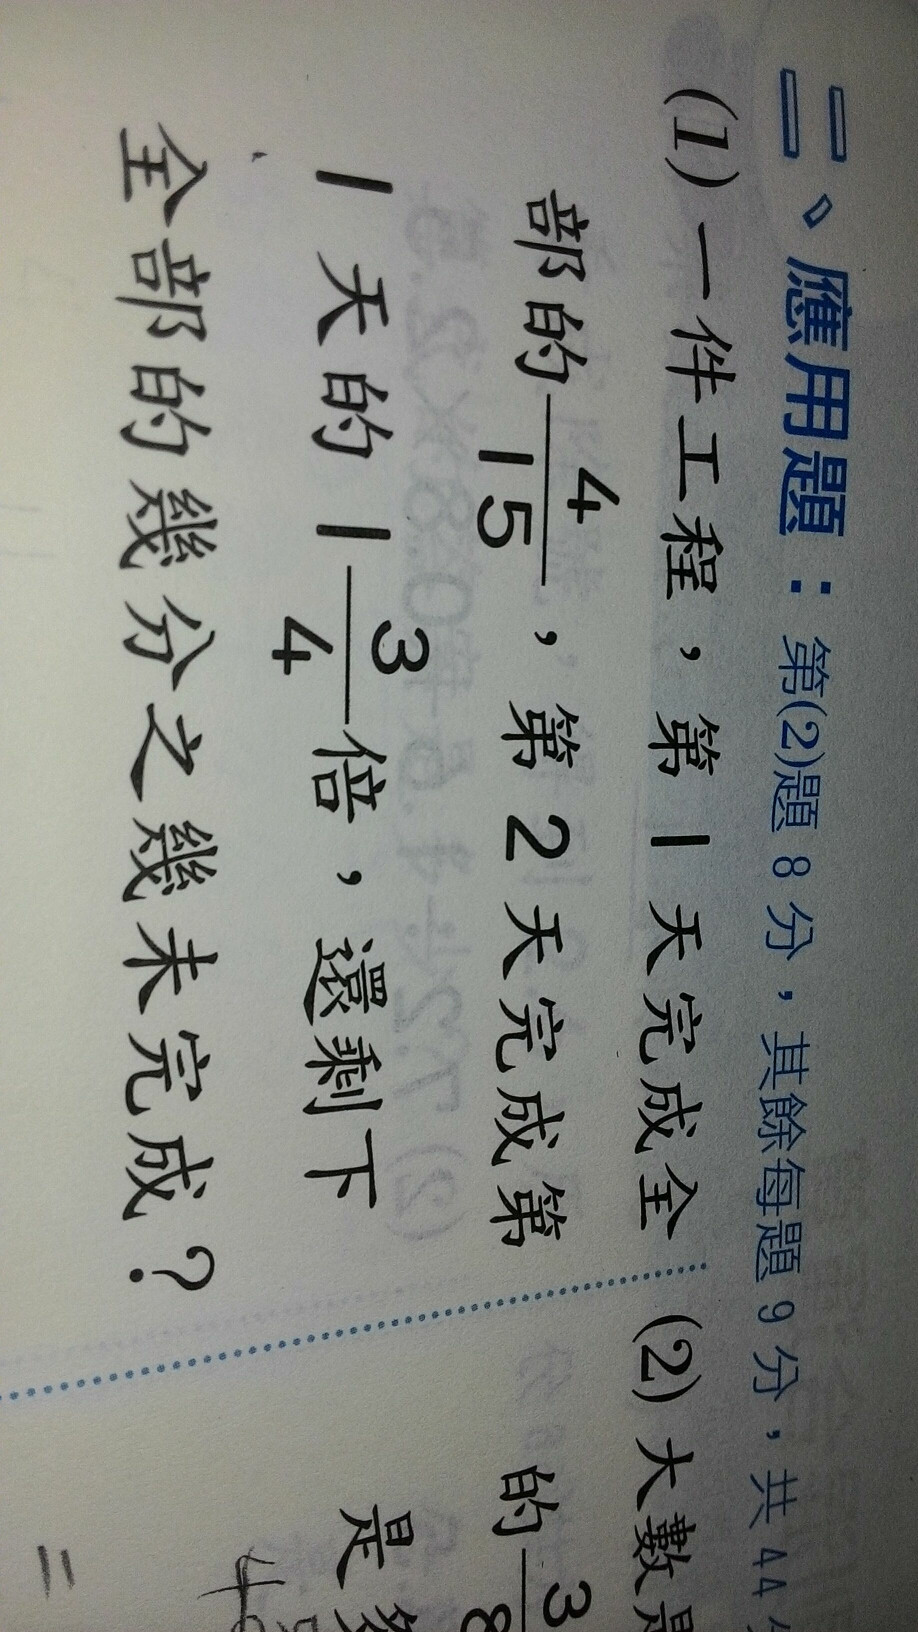 二、應用題：第(2)題 8 分，其餘每題 9 分，共 44
(1) 一件工程，第 1 天完成全
部的 4/15，第 2 天完成第
1 天的 1 3/4 倍，還剩下
全部的幾分之幾未完成？
(2) 大數
的 3/8
是